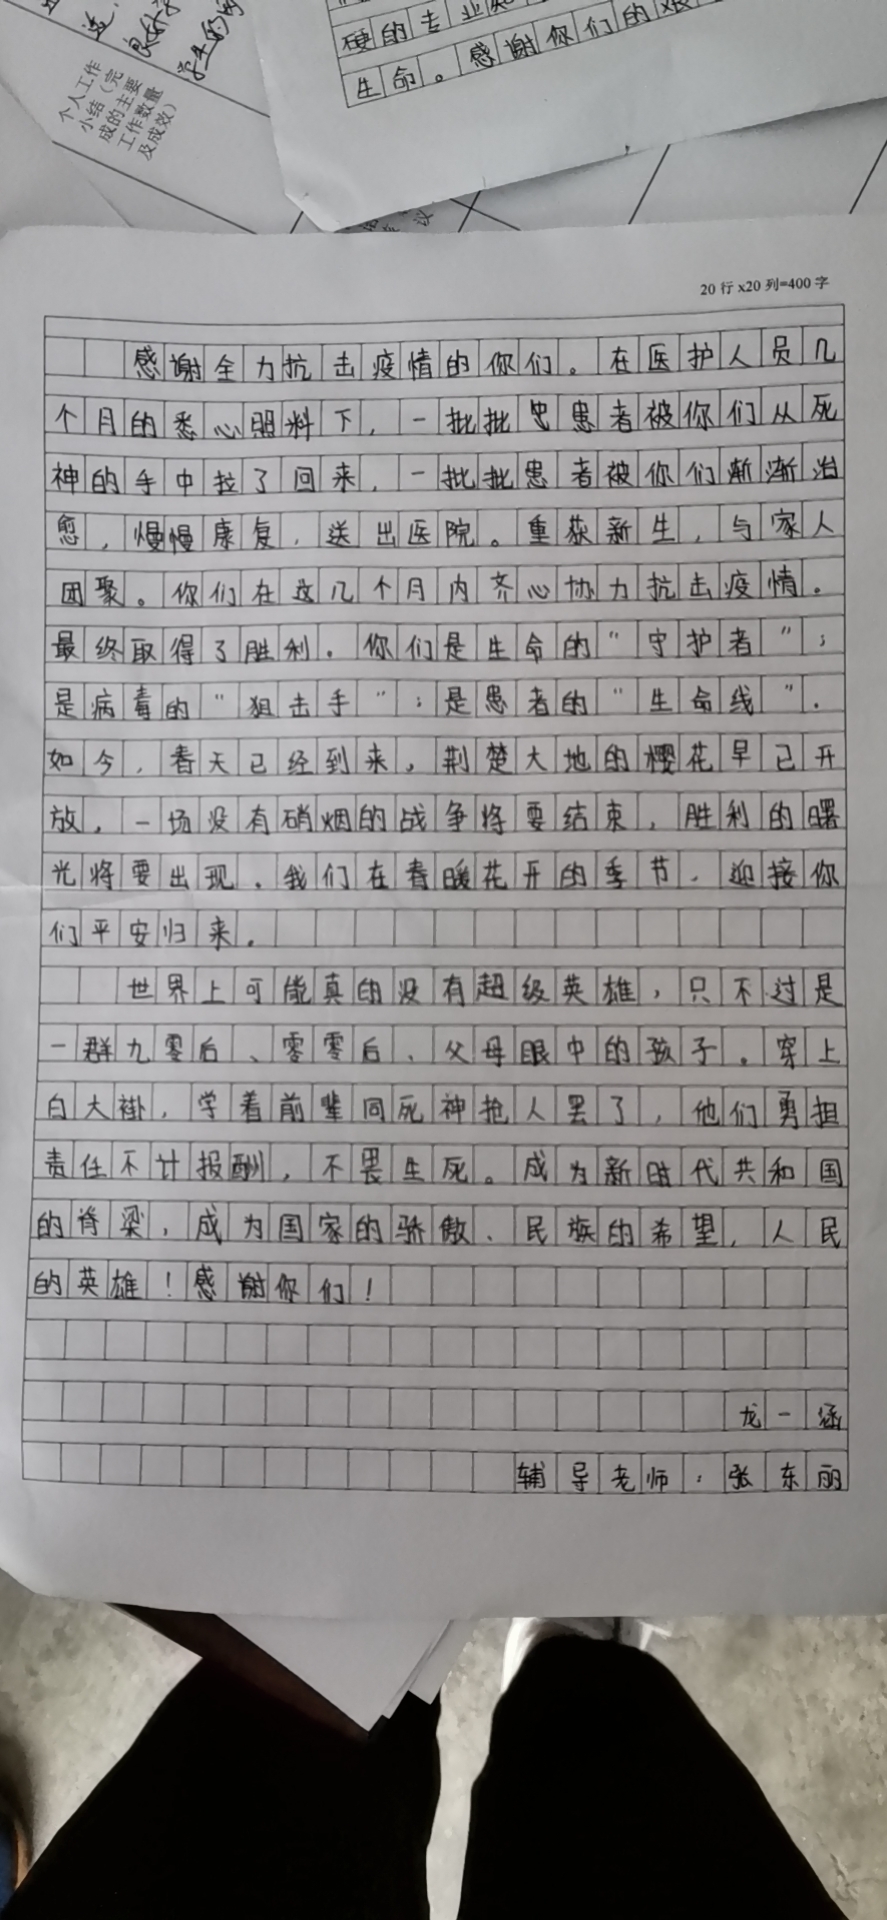 个人工作
小结（完
成的主要
工作数量
及成效）
硬的专业
生命。感谢你们的
议
20 行 x20 列=400 字
感谢全力抗击疫情的你们。在医护人员几
个月的悉心照料下，一批批患者被你们从死
神的手中拉了回来，一批批患者被你们渐渐治
愈，慢慢康复，送出医院。重获新生，与家人
团聚。你们在这几个月内齐心协力抗击疫情。
最终取得了胜利。你们是生命的“守护者”；
是病毒的“狙击手”；是患者的“生命线”．
如今，春天已经到来，荆楚大地的樱花早已开
放，一场没有硝烟的战争将要结束，胜利的曙
光将要出现．我们在春暖花开的季节．迎接你
们平安归来．
世界上可能真的没有超级英雄，只不过是
一群九零后、零零后、父母眼中的孩子．穿上
白大褂，学着前辈同死神抢人罢了，他们勇担
责任不计报酬，不畏生死。成为新时代共和国
的脊梁，成为国家的骄傲、民族的希望，人民
的英雄！感谢你们！
龙一涵
辅导老师：张东丽